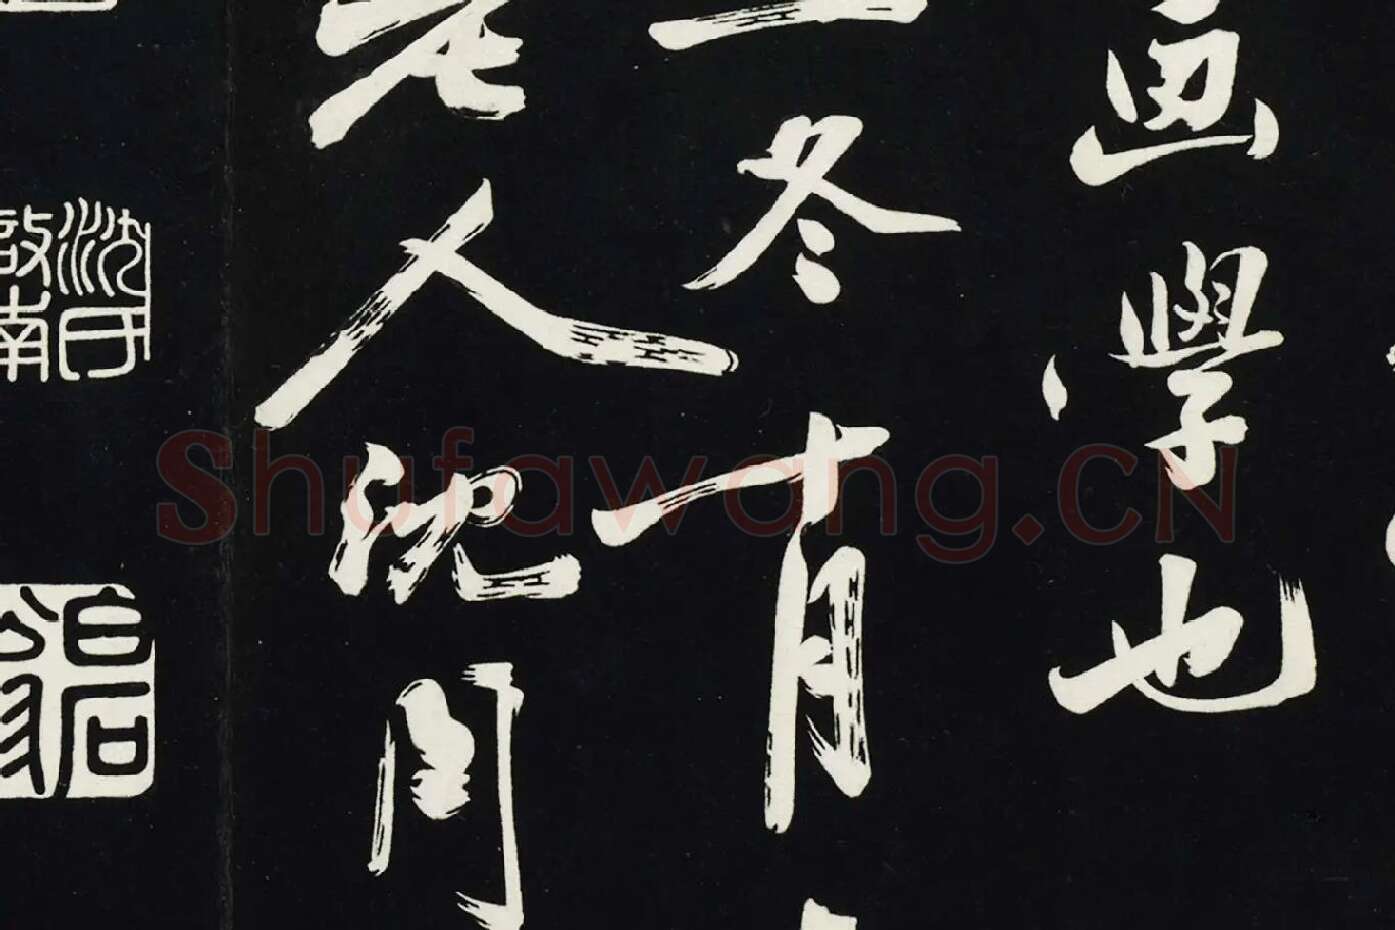 画學也
冬十月
老人沈周
沈氏
啟南
石田
Shufawang.CN